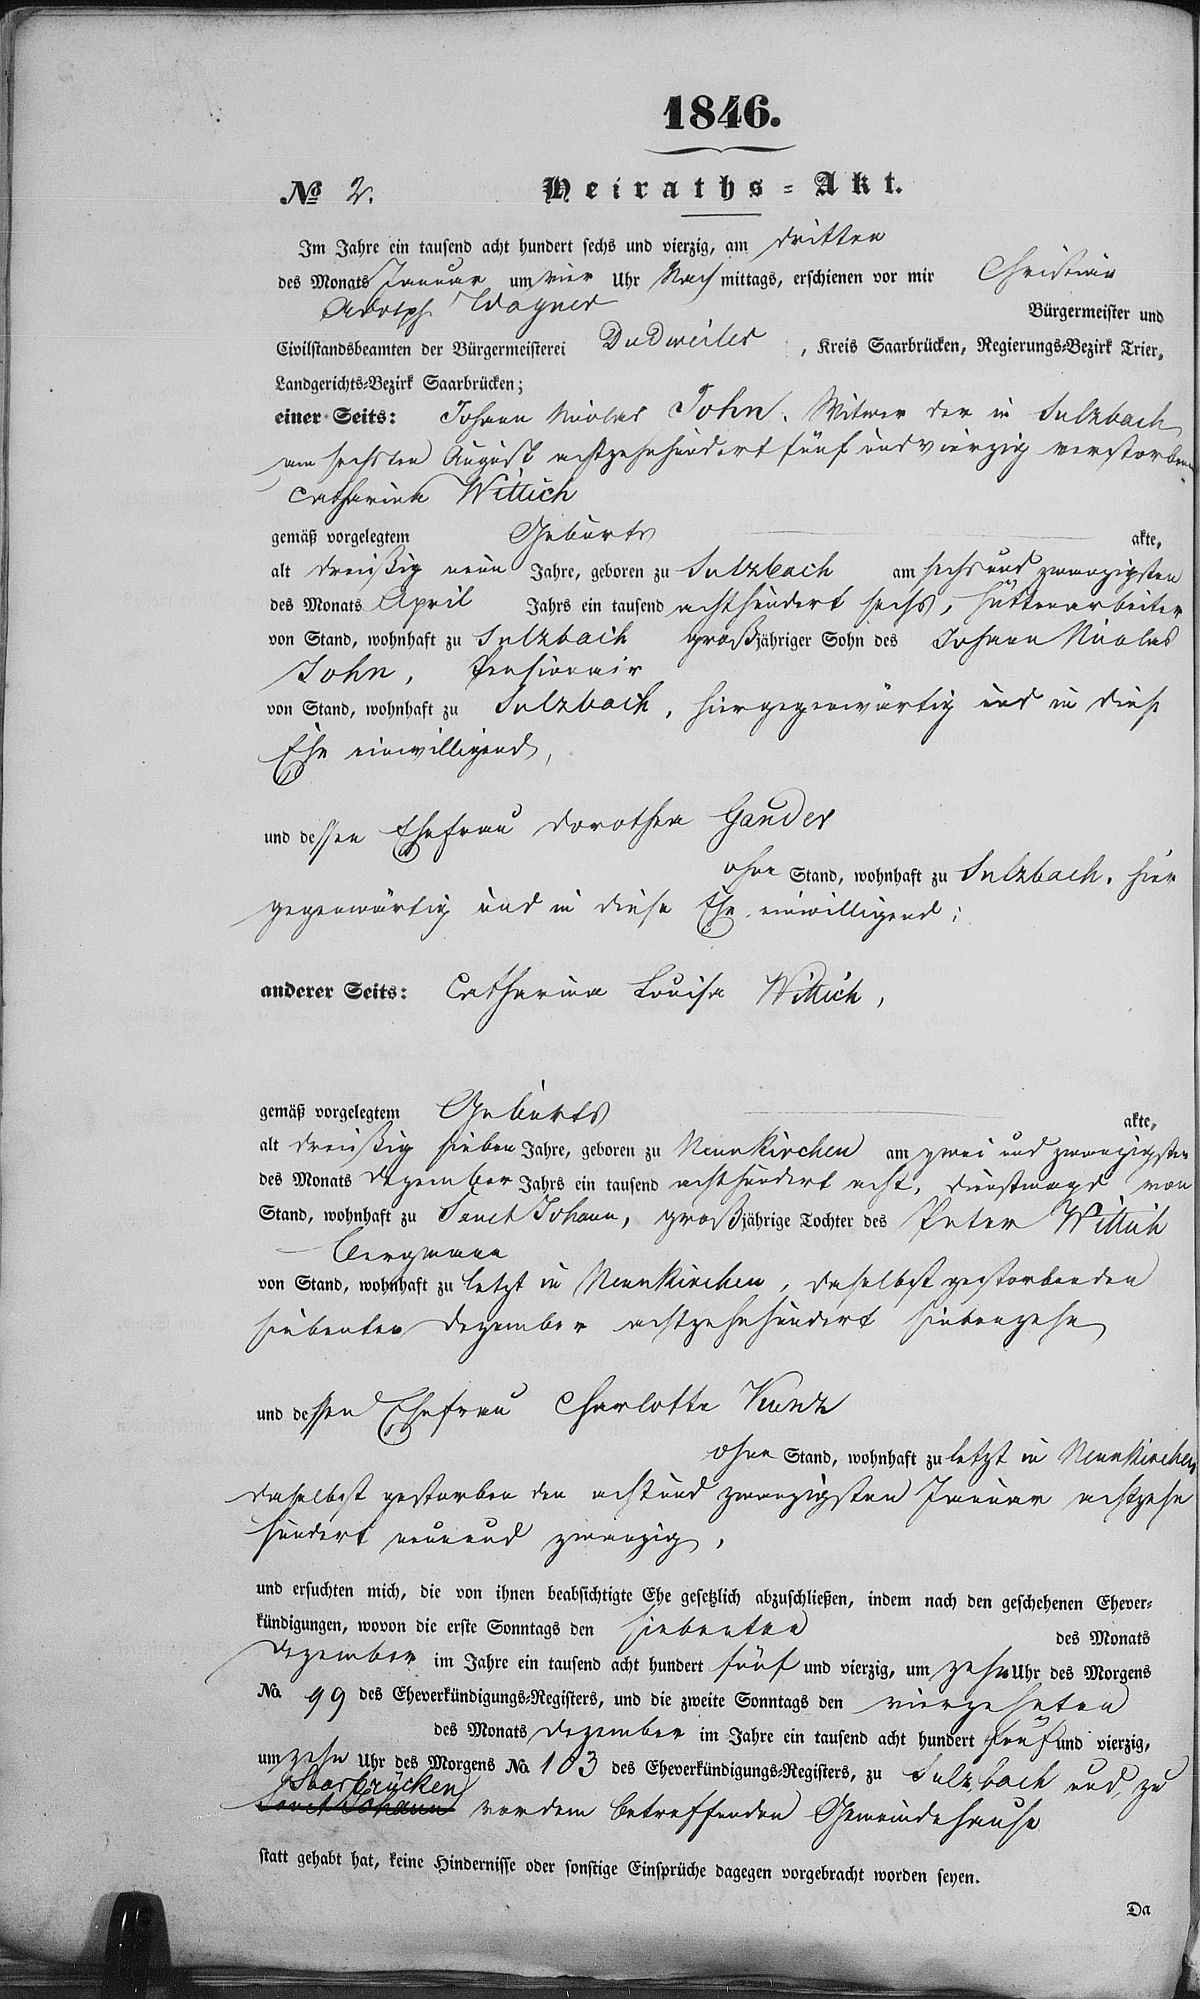 1846.
№ 2. Heiraths-Akt.
Im Jahre ein tausend acht hundert sechs und vierzig, am dritten
des Monats Januar um vier Uhr Nachmittags, erschienen vor mir Christian
Adolph Wagner Bürgermeister und
Civilstandsbeamten der Bürgermeisterei Dudweiler, Kreis Saarbrücken, Regierungs-Bezirk Trier,
Landgerichts-Bezirk Saarbrücken;
einer Seits: Johann Nicolas John, Witwer der in Sulzbach
am sechsten August achtzehnhundert fünf und vierzig verstorbenen
Catharina Wittich
gemäß vorgelegtem Geburts akte,
alt dreißig neun Jahre, geboren zu Sulzbach am sechs und zwanzigsten
des Monats April Jahrs ein tausend achthundert sechs, Hüttenarbeiter
von Stand, wohnhaft zu Sulzbach großjähriger Sohn des Johann Nicolas
John, Pensionair
von Stand, wohnhaft zu Sulzbach, hier gegenwärtig und in diese
Ehe einwilligend,
und dessen Ehefrau Dorothea Gander
ohne Stand, wohnhaft zu Sulzbach, hier
gegenwärtig und in diese Ehe einwilligend;
anderer Seits: Catharina Louisa Wittich,
gemäß vorgelegtem Geburts akte,
alt dreißig sieben Jahre, geboren zu Neunkirchen am zwei und zwanzigsten
des Monats Dezember Jahrs ein tausend achthundert acht, Dienstmagd von
Stand, wohnhaft zu Sanct Johann, großjährige Tochter des Peter Wittich
Bergmann
von Stand, wohnhaft zu letzt in Neunkirchen, daselbst gestorben den
siebenten Dezember achtzehnhundert siebenzehn
und dessen Ehefrau Charlotte Kunz
ohne Stand, wohnhaft zu letzt in Neunkirchen
daselbst gestorben den acht und zwanzigsten Januar achtzehn
hundert neunund zwanzig,
und ersuchten mich, die von ihnen beabsichtigte Ehe gesetzlich abzuschließen, indem nach den geschehenen Ehever-
kündigungen, wovon die erste Sonntags den siebenten des Monats
Dezember im Jahre ein tausend acht hundert fünf und vierzig, um zehn Uhr des Morgens
No. 99 des Eheverkündigungs-Registers, und die zweite Sonntags den vierzehnten
des Monats Dezember im Jahre ein tausend acht hundert fünf und vierzig,
um zehn Uhr des Morgens No. 103 des Eheverkündigungs-Registers, zu Sulzbach und zu
Saarbrücken
Sanct Johann vor dem betreffenden Gemeindehause
statt gehabt hat, keine Hindernisse oder sonstige Einsprüche dagegen vorgebracht worden seyen.
Da